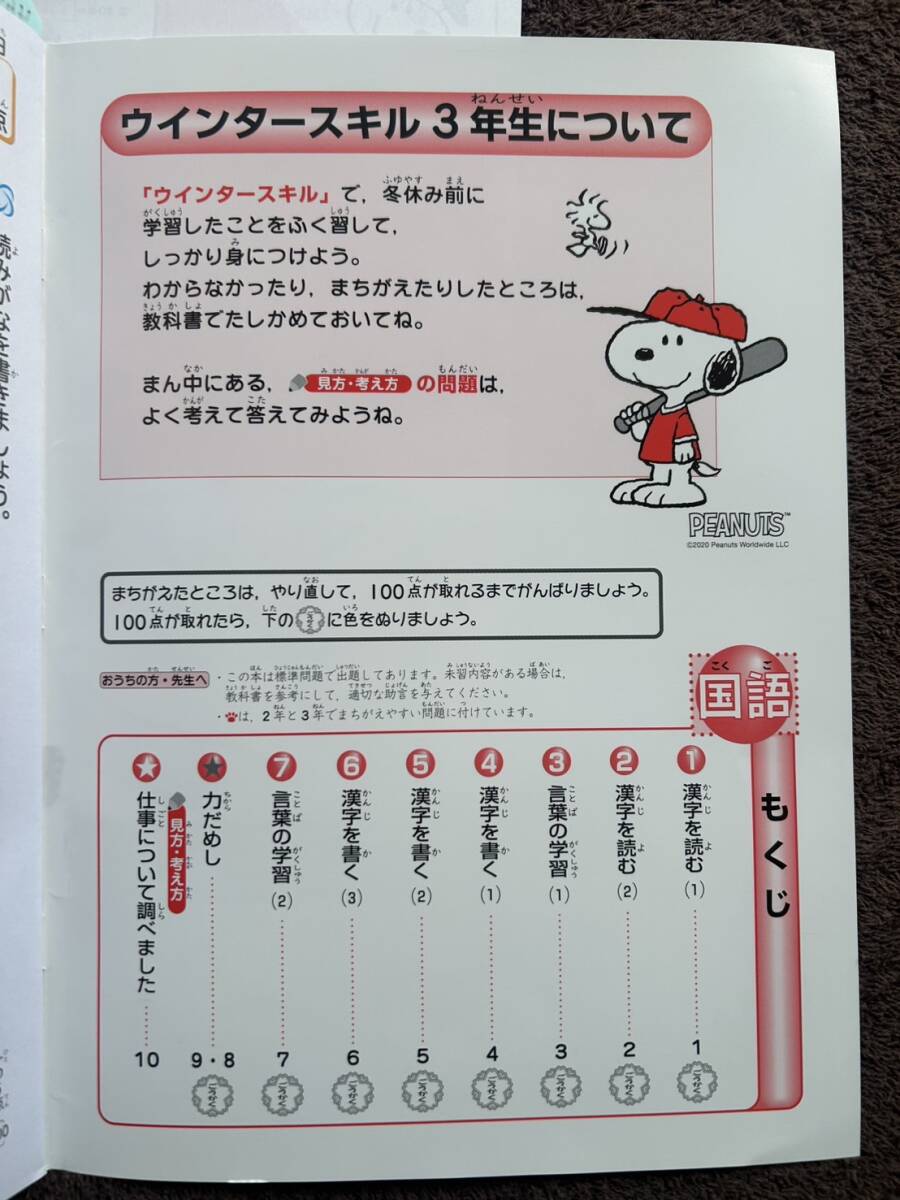 ウインタースキル3年生について
「ウインタースキル」で，冬休み前に
学習したことをふく習して，
しっかり身につけよう。
わからなかったり，まちがえたりしたところは，
教科書でたしかめておいてね。
まん中にある，見方・考え方の問題は，
よく考えて答えてみようね。
PEANUTS™
©2020 Peanuts Worldwide LLC
まちがえたところは，やり直して，100点が取れるまでがんばりましょう。
100点が取れたら，下のごうかくに色をぬりましょう。
おうちの方・先生へ
・この本は標準問題で出題してあります。未習内容がある場合は，
教科書を参考にして，適切な助言を与えてください。
・は，2年と3年でまちがえやすい問題に付けています。
国語
もくじ
1 漢字を読む(1) 1 ごうかく
2 漢字を読む(2) 2 ごうかく
3 言葉の学習(1) 3 ごうかく
4 漢字を書く(1) 4 ごうかく
5 漢字を書く(2) 5 ごうかく
6 漢字を書く(3) 6 ごうかく
7 言葉の学習(2) 7 ごうかく
★ 力だめし 9・8 ごうかく
★ 見方・考え方 仕事について調べました 10
読みがなを書きましょう。